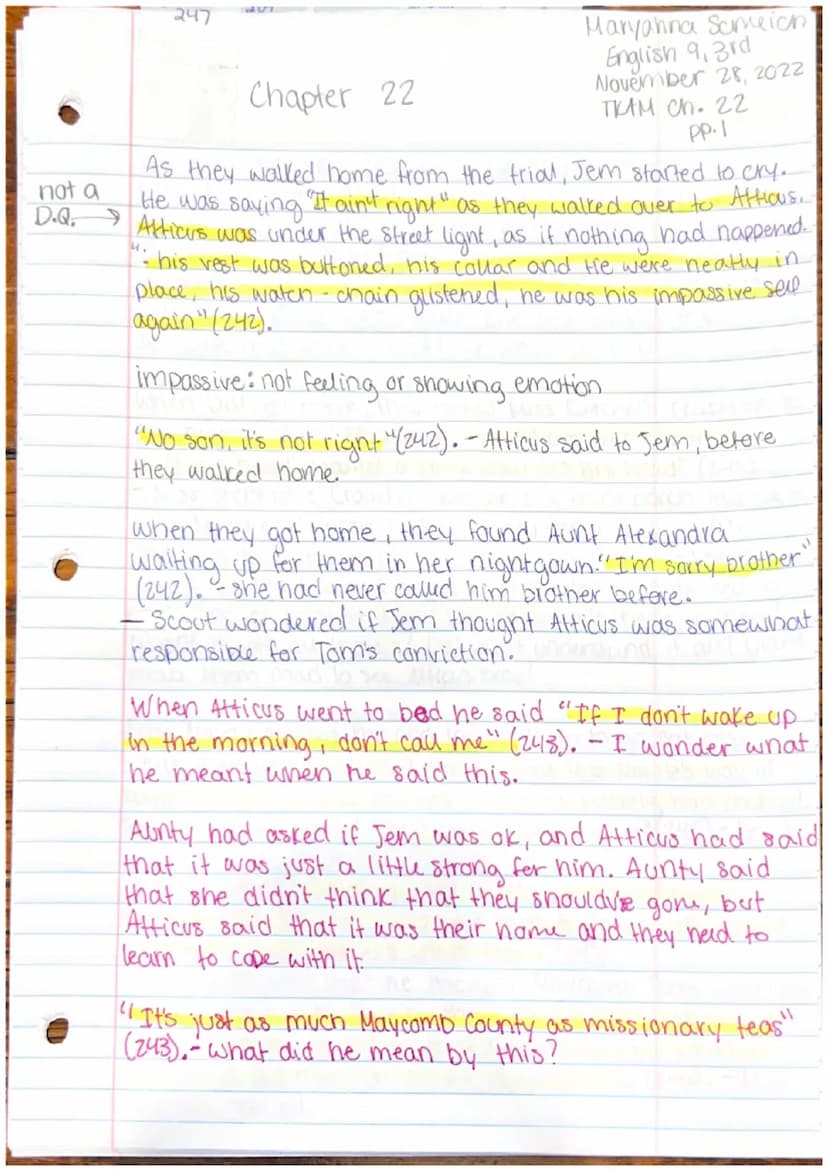 247
Maryanna Someich
English 9, 3rd
November 28, 2022
TKAM Ch. 22
pp. 1
Chapter 22
As they walked home from the trial, Jem started to cry.
He was saying "It ain't right" as they walked over to Atticus.
Atticus was under the street light, as if nothing had happened.
": his vest was buttoned, his collar and tie were neatly in
place, his watch-chain glistened, he was his impassive self
again" (242).
not a
D.Q. →
impassive: not feeling or showing emotion
"No son, it's not right" (242). - Atticus said to Jem, before
they walked home.
When they got home, they found Aunt Alexandra
waiting up for them in her nightgown. "I'm sorry brother"
(242). - she had never called him brother before.
- Scout wondered if Jem thought Atticus was somewhat
responsible for Tom's conviction.
When Atticus went to bed he said "If I don't wake up
in the morning, don't call me" (243). - I wonder what
he meant when he said this.
Aunty had asked if Jem was ok, and Atticus had said
that it was just a little strong for him. Aunty said
that she didn't think that they should've gone, but
Atticus said that it was their home and they need to
learn to cope with it.
"It's just as much Maycomb County as missionary teas"
(243). - what did he mean by this?